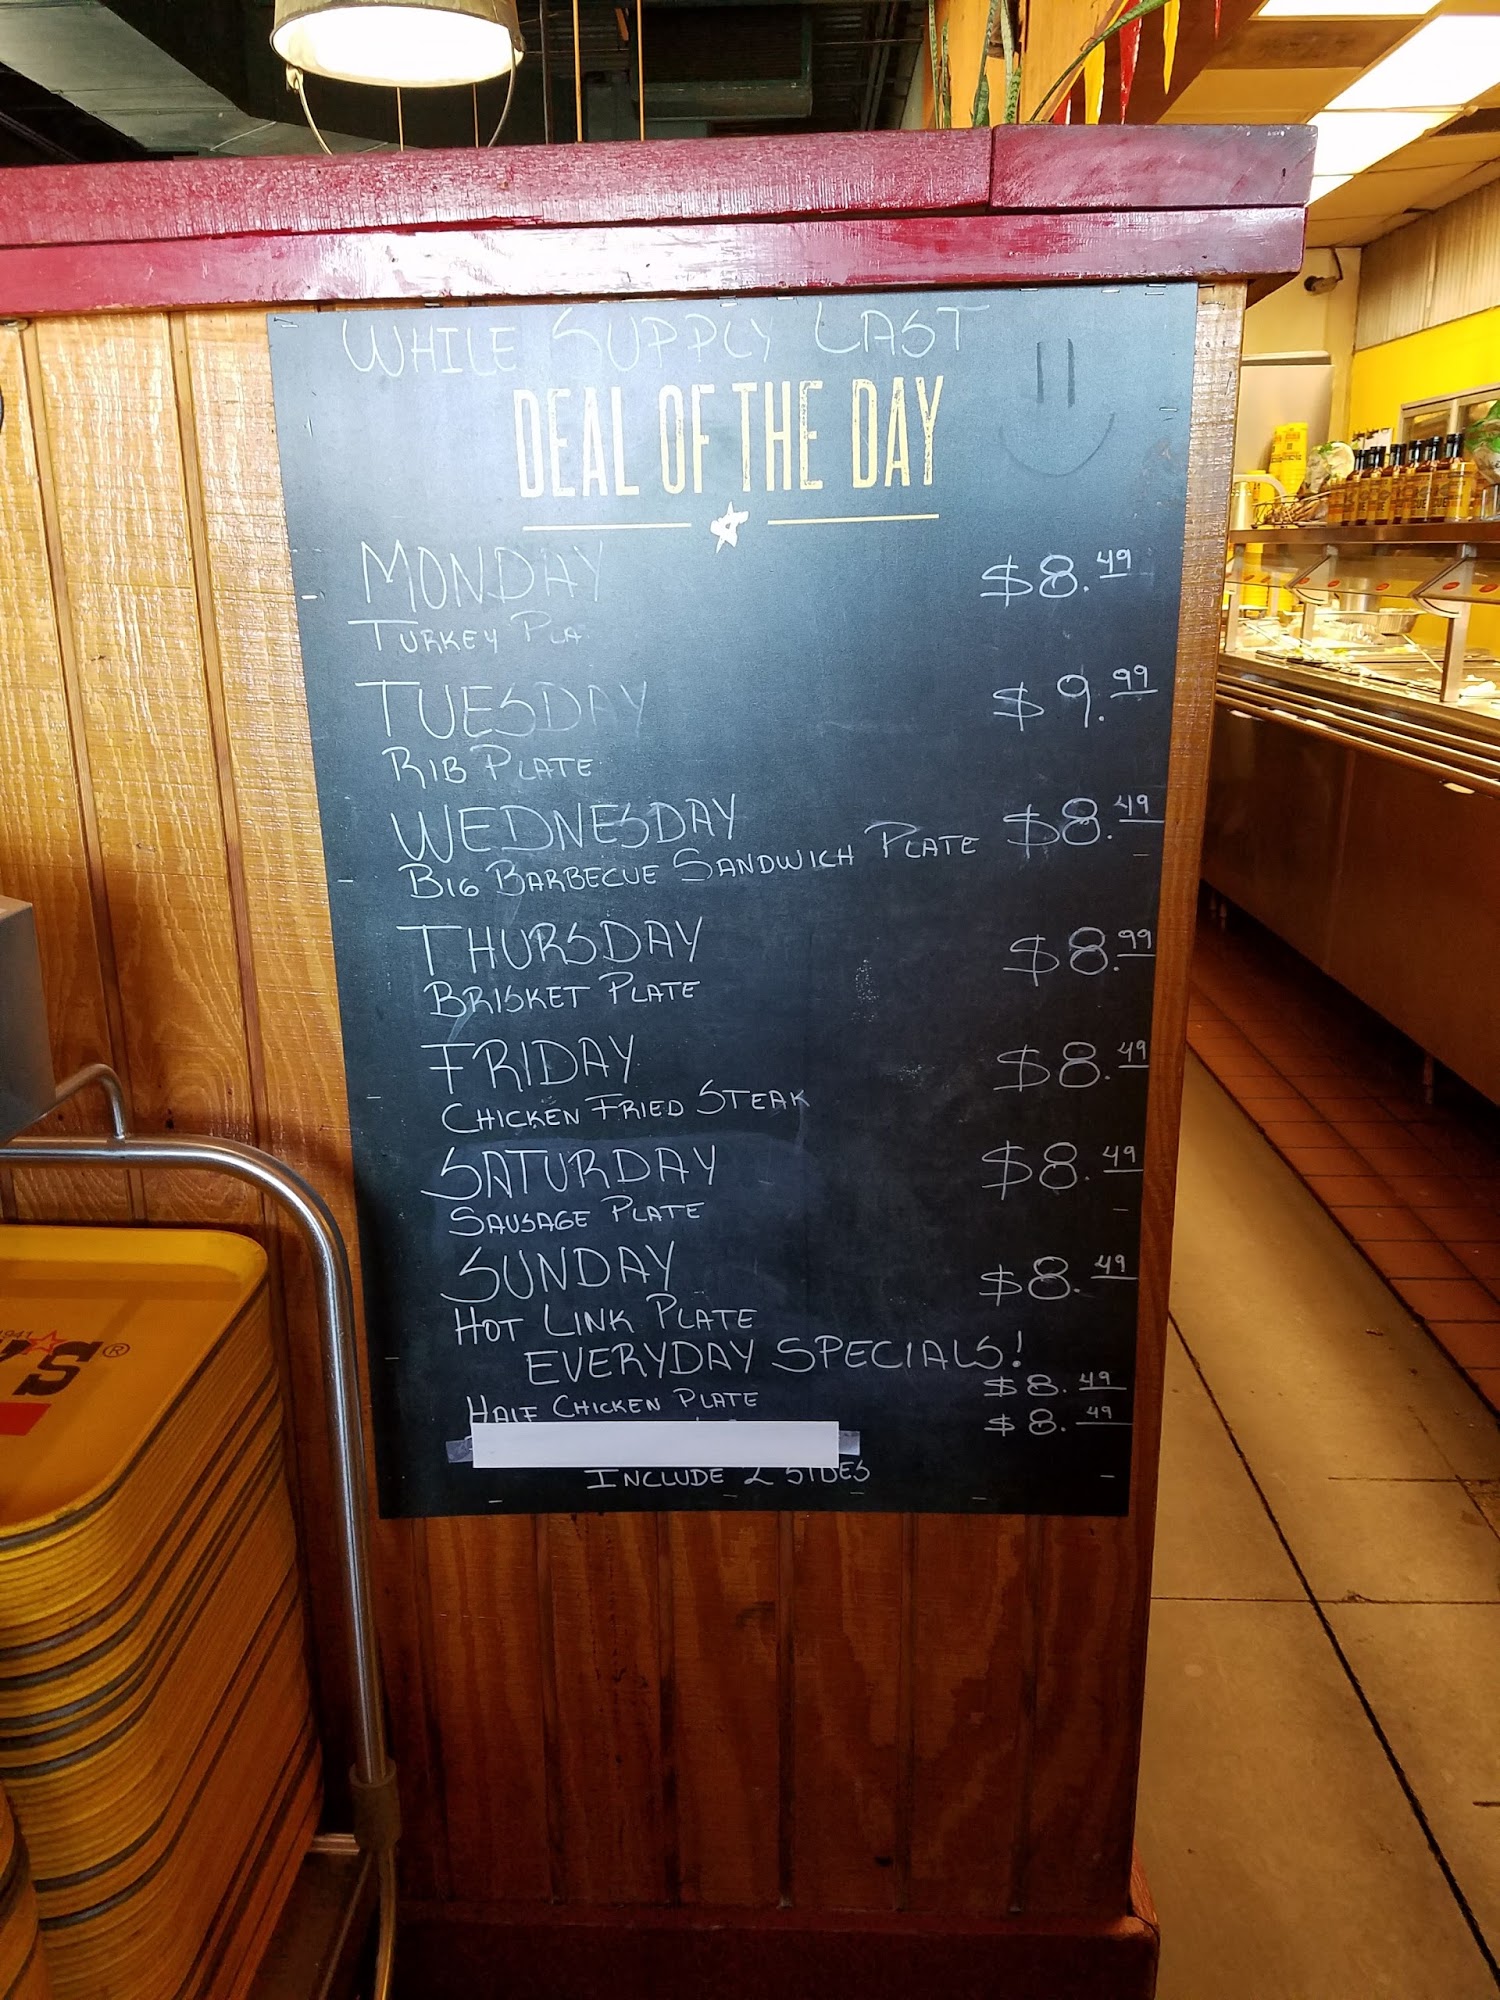 WHILE SUPPLY LAST
DEAL OF THE DAY
MONDAY $8.49
TURKEY PLA
TUESDAY $9.99
RIB PLATE
WEDNESDAY $8.49
BIG BARBECUE SANDWICH PLATE
THURSDAY $8.99
BRISKET PLATE
FRIDAY $8.49
CHICKEN FRIED STEAK
SATURDAY $8.49
SAUSAGE PLATE
SUNDAY $8.49
HOT LINK PLATE
EVERYDAY SPECIALS!
HALF CHICKEN PLATE $8.49
$8.49
INCLUDE 2 SIDES
1941
S®